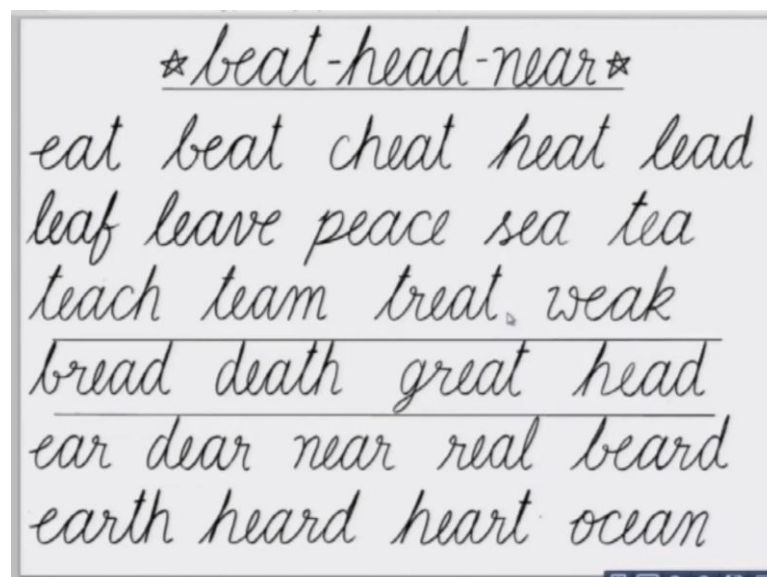 ☆beat-head-near☆
eat beat cheat heat lead
leaf leave peace sea tea
teach team treat weak
bread death great head
ear dear near real beard
earth heard heart ocean